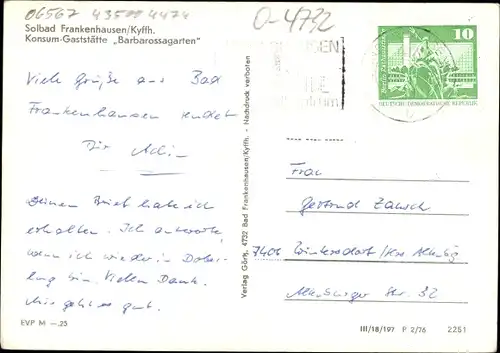 06567 43599 4474
O-4732
Solbad Frankenhausen/Kyffh.
Konsum-Gaststätte „Barbarossagarten"
10
DEUTSCHE DEMOKRATISCHE REPUBLIK
Viele Grüße aus Bad
Frankenhausen sendet
Dir Adi
Deinen Brief habe ich
erhalten. Ich antworte,
wenn ich wieder in
bin. Vielen Dank.
Mir geht es gut.
EVP M —.25
Verlag Görtz, 4732 Bad Frankenhausen/Kyffh. - Nachdruck verboten
Frau
Gertrud
7406 Wintersdorf/Krs. Altenbg
Altenburger Str. 32
III/18/197 P 2/76 2251